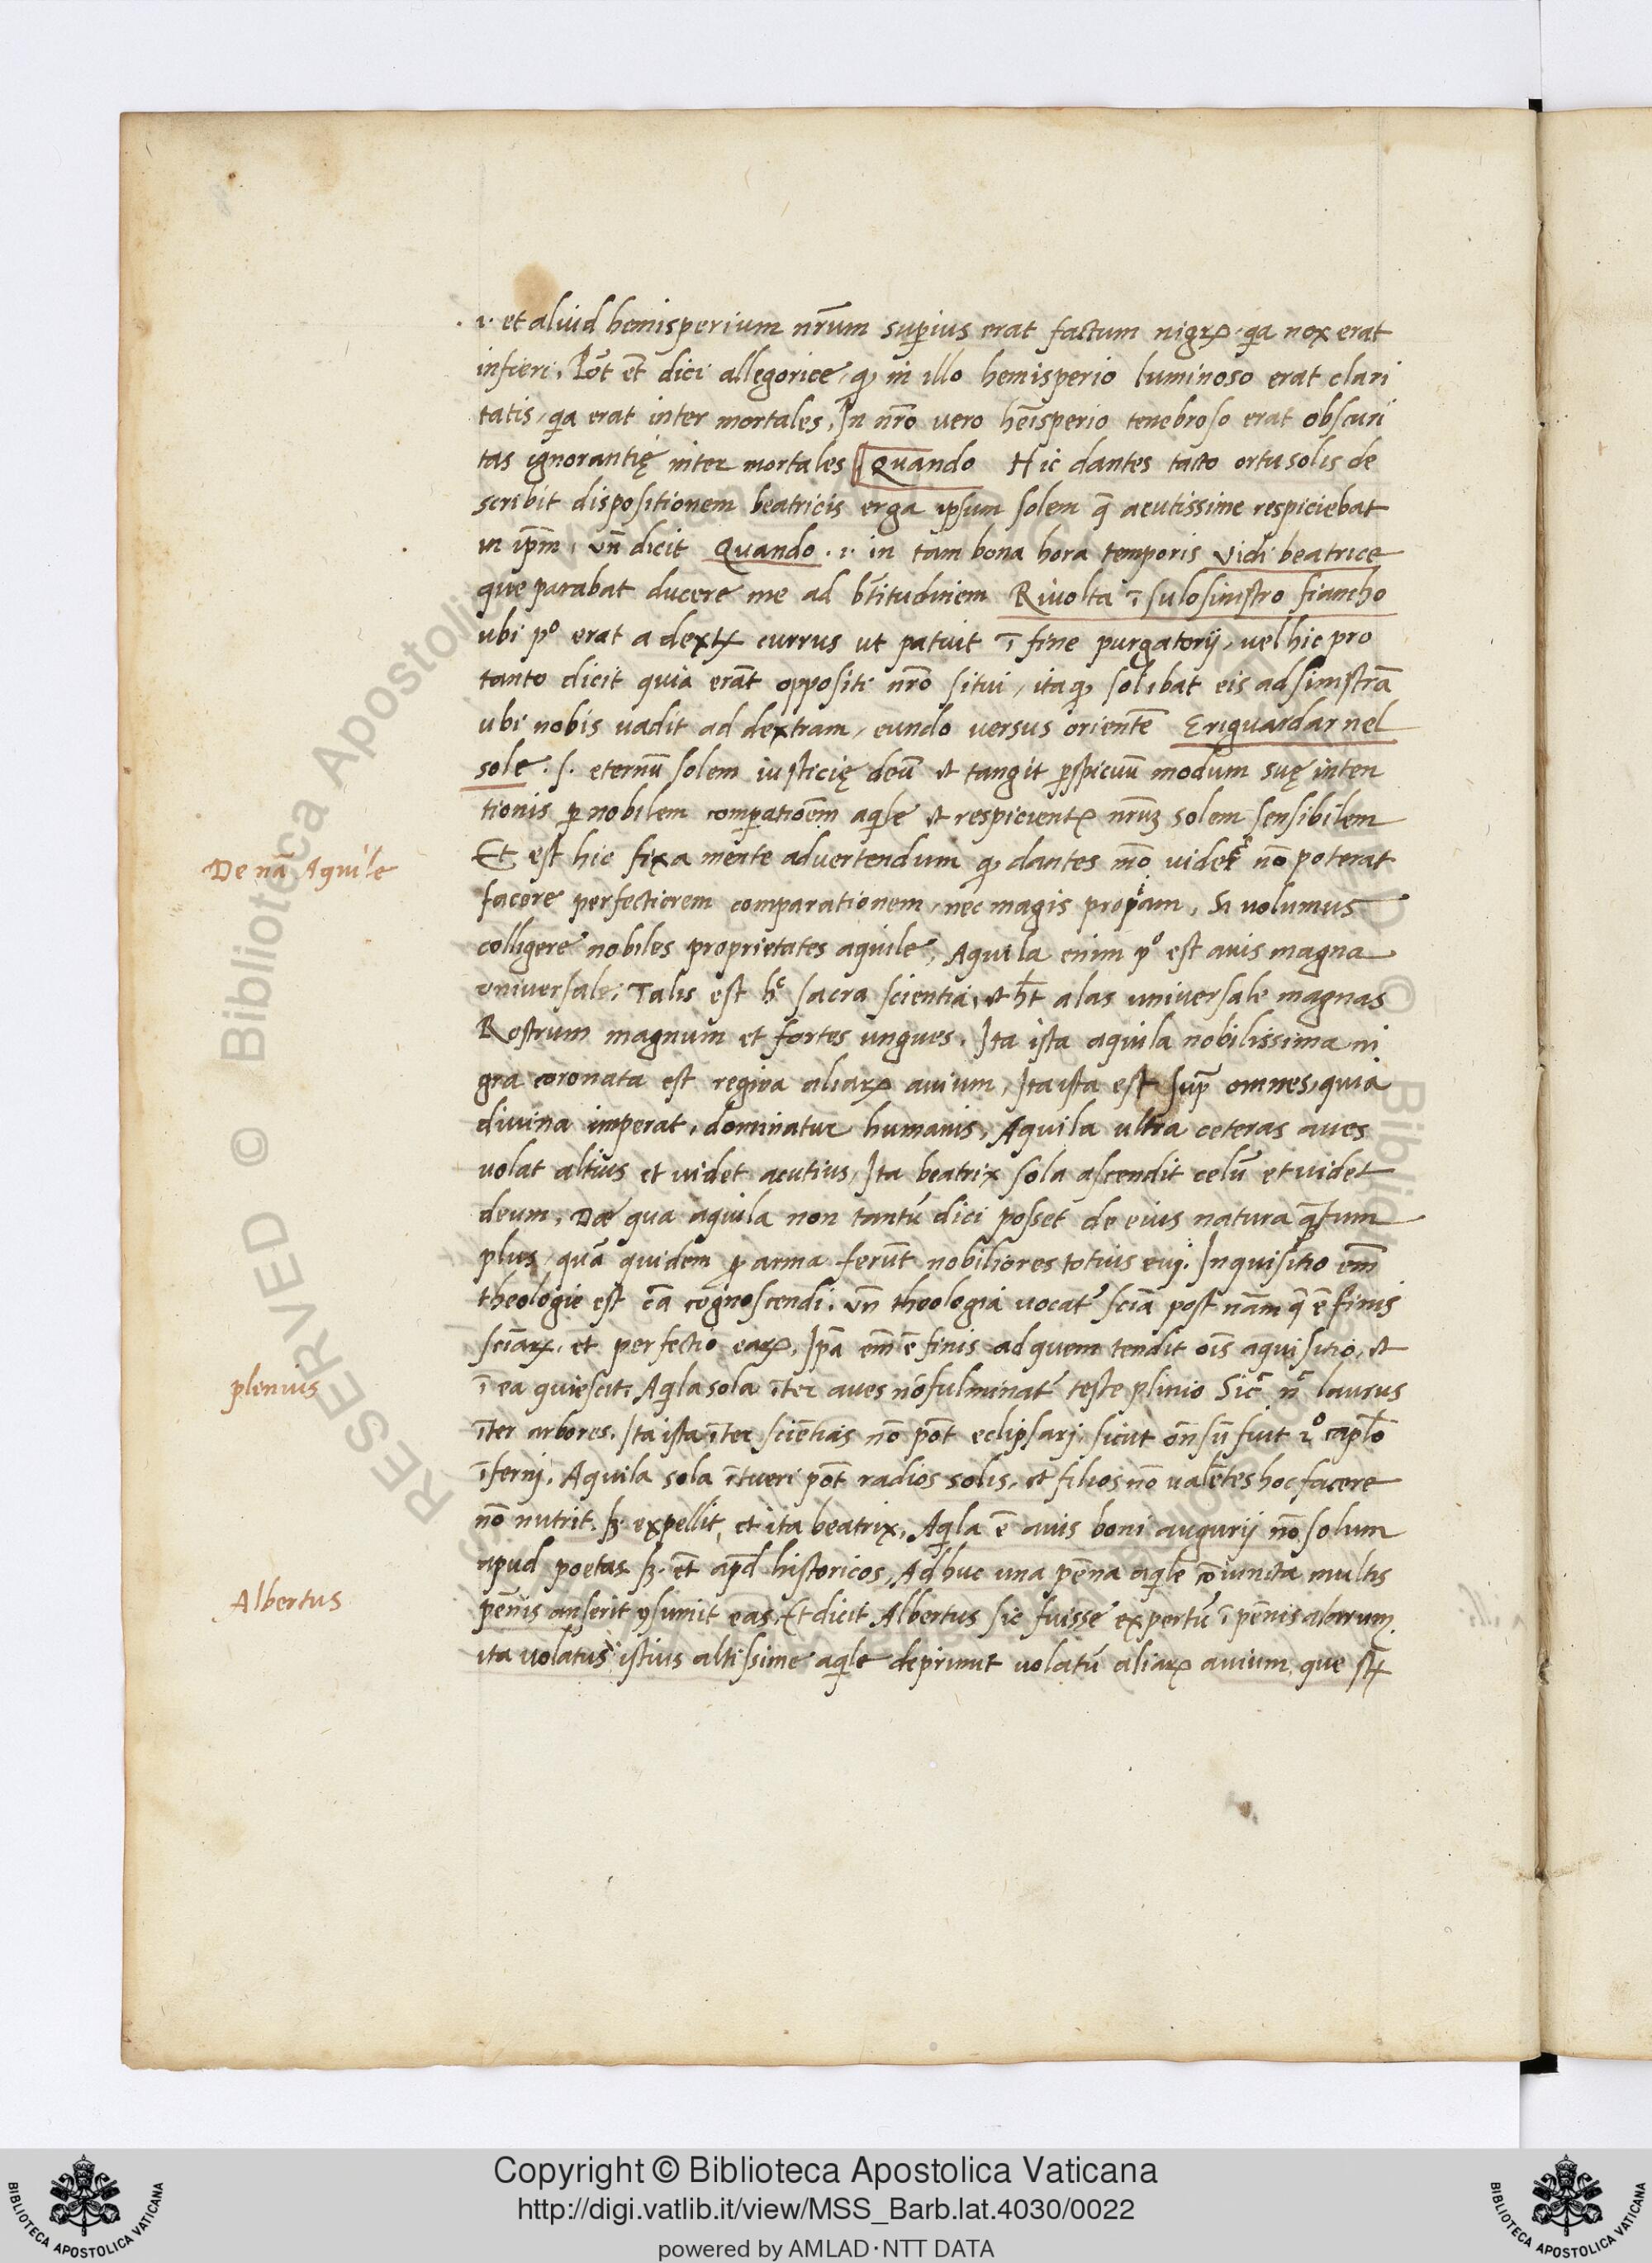 .i. et aliud hemisperium nr̄um sup̱ius erat factum nigrꝝ qi̇a nox erat
infieri. Pōt et̄ dici allegorice, ꝙ in illo hemisperio luminoso erat clari
tatis, qi̇a erat inter mortales. In nr̄o vero hēisperio tenebroso erat obscuri
tas ignorantię inter mortales Quando Hic dantes tacto ortu solis de
scribit dispositionem beatricis erga ipsum solem q̄ acutissime respiciebat
in ip̄m, vn̄ dicit Quando .i. in tam bona hora temporis vidi beatrice
que parabat ducere me ad bt̄itudinem Rivolta ī sulo sinistro fiancho
ubi pº erat a dextꝝ currus ut patuit ī fine purgatorij, vel hic pro
tanto dicit quia erāt oppositi nr̄o situi, itaꝙ sol ibat eis ad sinistrā
ubi nobis vadit ad dextram, eundo versus orientē E riguardar nel
sole .s. eternū solem iusticię deū et tangit ꝑspicuū modum suę inten
tionis ꝑ nobilem comꝑatioēm aqi̇le et respicientꝝ nr̄uꝫ solem sensibilem
De nā Aquile
Et est hic fixa mente advertendum ꝙ dantes mō videre nō poterat
facere perfectiorem comparationem, nec magis propi̇am, Si volumus
colligere nobiles proprietates aquile, Aquila enim pº est avis magna
universale; Talis est hc̄ sacra scientia, et h̄t alas universale magnas
Rostrum magnum et fortes ungues. Ita ista aquila nobilissima ni
gra coronata est regina aliarꝝ avium, Ita ista est sup̄ omnes, quia
divina imperat, dominatur humanis, Aquila ultra ceteras aves
volat altius et videt acutius, Ita beatrix sola ascendit celū et videt
deum, Dae qua aquila non tantū dici posset de eius natura qṫum
plus, quā quidem ꝓ arma ferūt nobiliores totius evi. Inquisitio em̄
theologie est cā cognoscendi. vn̄ theologia vocat᷑ sciā post nām q̄ ē finis
sciārꝝ, et perfectio earꝝ, Ip̄a em̄ ē finis ad quem tendit oīs aquisitio, et
plenius
ī ea quiescit, Aqi̇la sola īter aves nō fulminat᷑ teste plinio Sic᷑ nc̄ laurus
īter arbores. Ita ista īter sciētias nō pōt eclipsarj. sicut on̄sū fuit 2º capl̄o
īfernj. Aquila sola ītueri pōt radios solis, et filios nō valētes hoc facere
nō nutrit. sꝫ expellit, et ita beatrix, Aqi̇la ē avis boni augurij nō solum
apud poetas sꝫ. et̄ apd̄ historicos, Adhuc una pēna aqi̇le cōiuncta multis
Albertus
pēnis anserit ꝯsumit eas, Et dicit Albertus sic fuisse expertū ī pēnis alarum.
ita volatus istius altissime aqi̇le deprimit volatū aliarꝝ avium, que stꝝ
Copyright © Biblioteca Apostolica Vaticana
http://digi.vatlib.it/view/MSS_Barb.lat.4030/0022
powered by AMLAD·NTT DATA